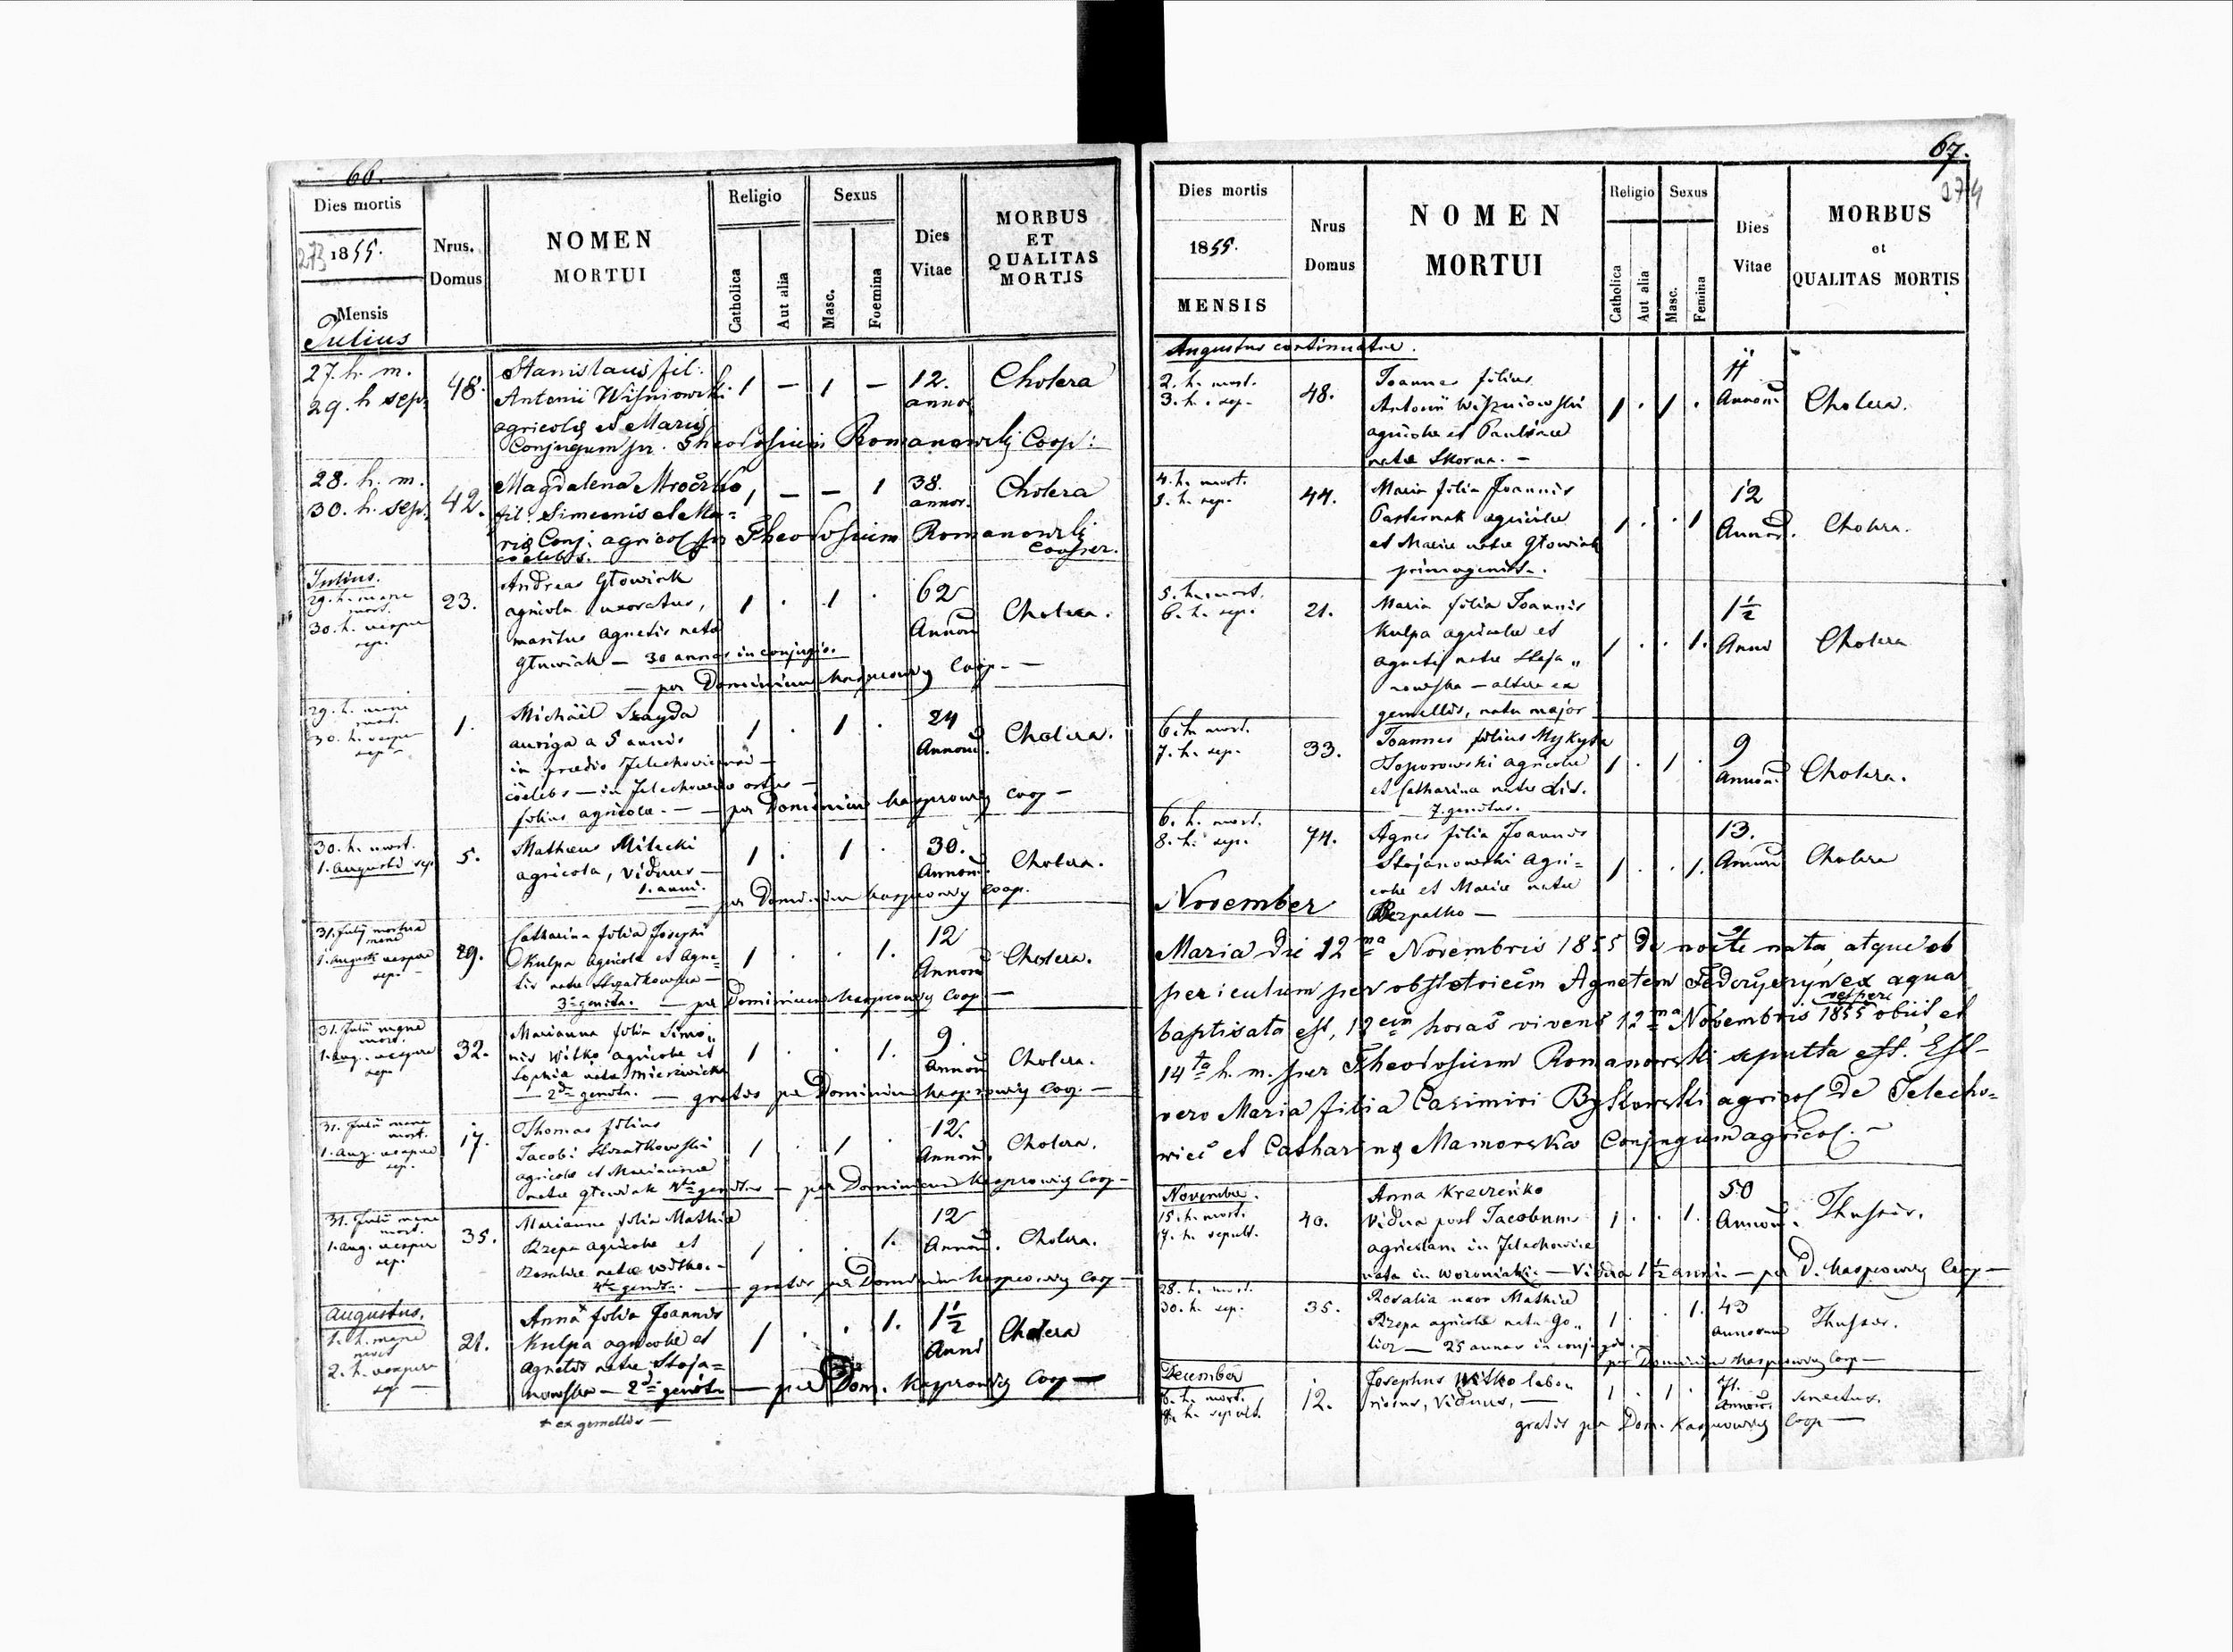 66.
Dies mortis
273 1855.
Mensis
Julius
Nrus.
Domus
NOMEN
MORTUI
Religio
Catholica
Aut alia
Sexus
Masc.
Foemina
Dies
Vitae
MORBUS
ET
QUALITAS
MORTIS
27. h. m.
29. h sep.
48.
Stanislaus fil:
Antonii Wiśniowski
agricolę et Marię
Conjugum pr. Theodosium Romanowski Coop:
1 — 1 —
12.
annor
Cholera
28. h. m.
30. h. sep.
42.
Magdalena Mroczko
fil: Simeonis et Ma=
rię Conj: agricol pr Theodosium Romanowski
coelebs. Cooper.
1 — — 1
38.
annor.
Cholera
Julius.
29. h. mane
mort.
30. h. vespere
sep.
23.
Andreas Głowiak
agricola uxoratus,
maritus Agnetis nata
Głowiak — 30 annos in conjugio.
— per Dominium Kasprowicz Coop. —
1 . 1 .
62
Annor
Cholera.
29. h. mane
mort.
30. h. vespere
sep.
1.
Michäel Szayda
auriga a 5 annis
in prædio Jelechovie
cölebs — in Jelechowie ortus —
filius agricolæ. — per Dominium Kasprowicz Coop —
1 . 1 .
24
Annor.
Cholera.
30. h. mort.
1. Augusti sep
5.
Mathæus Milecki
agricola, viduus —
1. anni.
per Dominium Kasprowicz Coop.
1 . 1 .
30.
Annor.
Cholera.
31. Julij mortua
mane
1. Augusti vespere
sep.
29.
Catharina filia Josephi
Kulpa agricolæ et Agne=
tis natæ —
3. genita. — per Dominium Kasprowicz Coop —
1 . . 1.
12
Annor
Cholera.
31. Julii mane
mort.
1. Aug. vespere
sep.
32.
Marianna filia Simo„
nis Witko agricolæ et
Sophiæ natæ
— 2da genita. — gratis per Dominium Kasprowicz Coop. —
1 . . 1.
9.
Annor
Cholera.
31. Julii mane
mort.
1. Aug. vespere
sep.
17.
Thomas filius
Jacobi
agricolæ et Mariannæ
natæ Głowiak 4te genitus — per Dominium Kasprowicz Coop —
1 . 1 .
12.
Annor.
Cholera.
31. Julii mane
mort.
1. Aug. vespere
sep.
35.
Marianna filia Mathiæ
Rzepa agricolæ et
Rosaliæ natæ Witko. —
4te genita. — gratis per Dominium Kasprowicz Coop —
1 . . 1.
12
Annor.
Cholera.
Augustus.
1. h. mane
mort
2. h. vespere
sep —
21.
Anna + filia Joannis
Kulpa agricolæ et
Agnetis natæ Stoja=
nowska — 2da genita — per Dom. Kasprowicz Coop —
+ ex gemellis —
1 . . 1.
1½
Anni
Cholera
67.
274
Dies mortis
1855.
MENSIS
Nrus
Domus
NOMEN
MORTUI
Religio
Catholica
Aut alia
Sexus
Masc.
Femina
Dies
Vitae
MORBUS
et
QUALITAS MORTIS
Augustus continuatur.
2. h. mort.
3. h. sep.
48.
Joannes filius
Antonii Wiszniowski
agricolæ et Paulinæ
natæ Skorna. —
1 . 1 .
11
Annor.
Cholera.
4. h. mort.
h. sep.
44.
Maria filia Joannis
Pasternak agricolæ
et Mariæ natæ Głowiak
primogenita.
1 . . 1
12
Annor.
Cholera.
5. h. mort.
6. h. sep.
21.
Maria filia Joannis
Kulpa agricolæ et
Agnetis natæ Stoja„
nowska — altera ex
gemellis, natu major
1 . . 1.
1½
Anni
Cholera
6. h. mort.
7. h. sep.
33.
Joannes filius Mykyta
Toporowski agricolæ
et Catharina natæ Lis.
7. genitus.
1 . 1 .
9
Annor
Cholera.
6. h. mort.
8. h. sep.
74.
Agnes filia Joannis
Stojanowski agri=
colæ et Mariæ natæ
Bezpalko —
1 . . 1.
13.
Annor
Cholera
November
Maria die 12ma Novembris 1855 de nocte nata, atque ob
periculum per obstetricem Agnetem ex aqua
vespere
baptisata est, 12cim horas vivens 12ma Novembris 1855 obiit et
14ta h. m. per Theodosium Romanowski sepulta est. Est
vero Maria filia Casimiri Bykowski agricol de Jelecho=
wiec et Catharinę Mamorska Conjugum agricol. —
November.
15. h. mort.
17. h. sepult.
40.
Anna
Vidua post Jacobum
agricolam in Jelechowice
nata in Woroniaki. — Vidua 1½ anni — per D. Kasprowicz Coop —
1 . . 1.
50
Annor.
Thussis.
28. h. mort.
30. h. sep.
35.
Rosalia uxor Mathiæ
Rzepa agricolæ nata Go„
liez — 25 annos in conjugio. —
per Dominium Kasprowicz Coop —
1 . . 1.
43
Annorum
Thussis.
December
6. h. mort.
8. h. sepult.
12.
Josephus Witko labo„
riosus, Viduus, —
gratis per Dom. Kasprowicz Coop —
1 . 1 .
71.
Annor.
Senectus.